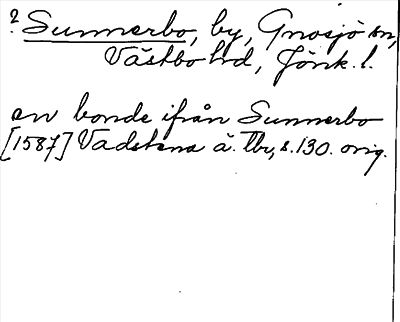 ? Sunnerbo, by, Gnosjö sn,
Västbo hd, Jönk. l.
en bonde ifrån Sunnerbo
[1587] Vadstena ä. Tbr, s. 130. orig.